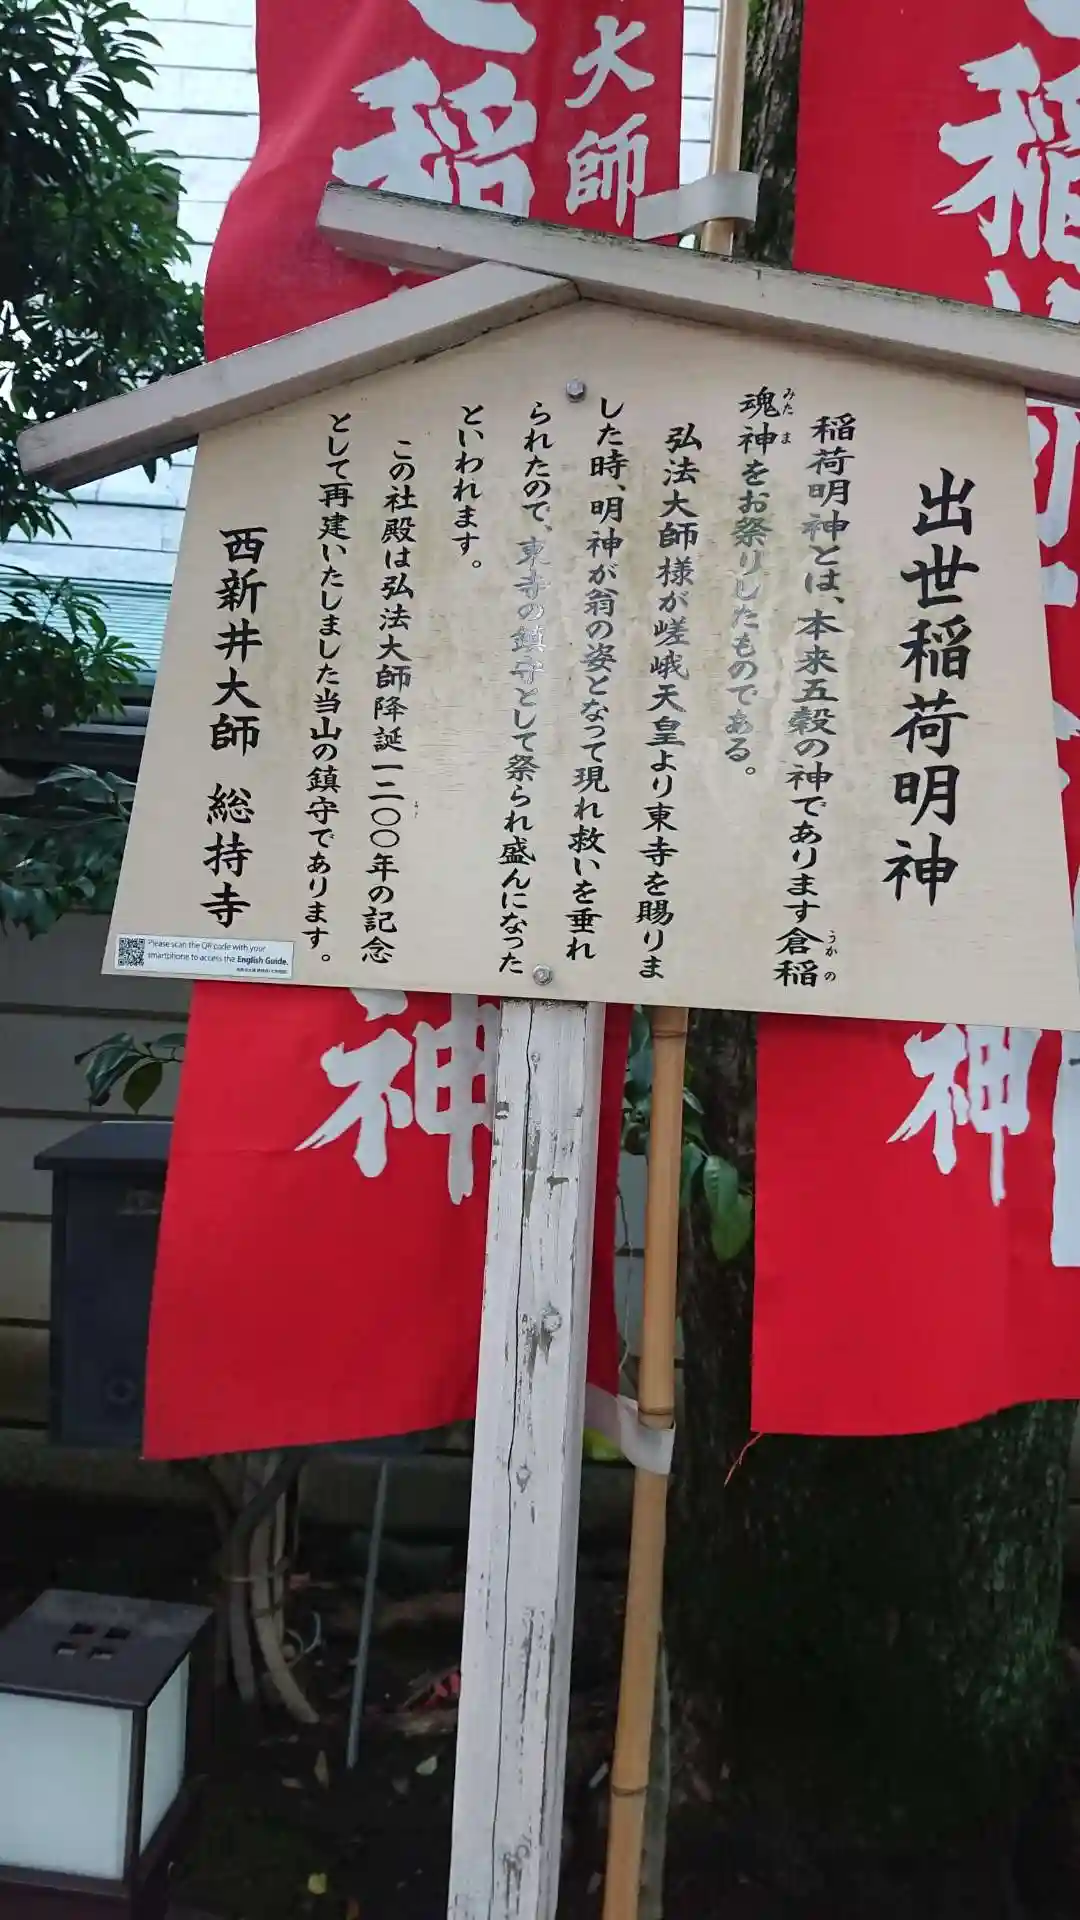 出世稲荷明神
稲荷明神とは、本来五穀の神であります倉稲
うかの
魂神をお祭りしたものである。
みたま
弘法大師様が嵯峨天皇より東寺を賜りま
した時、明神が翁の姿となって現れ救いを垂れ
られたので、東寺の鎮守として祭られ盛んになった
といわれます。
この社殿は弘法大師降誕一二〇〇年の記念
として再建いたしました当山の鎮守であります。
西新井大師 総持寺
Please scan the QR code with your
smartphone to access the English Guide.
大師
稲
神
稲
神